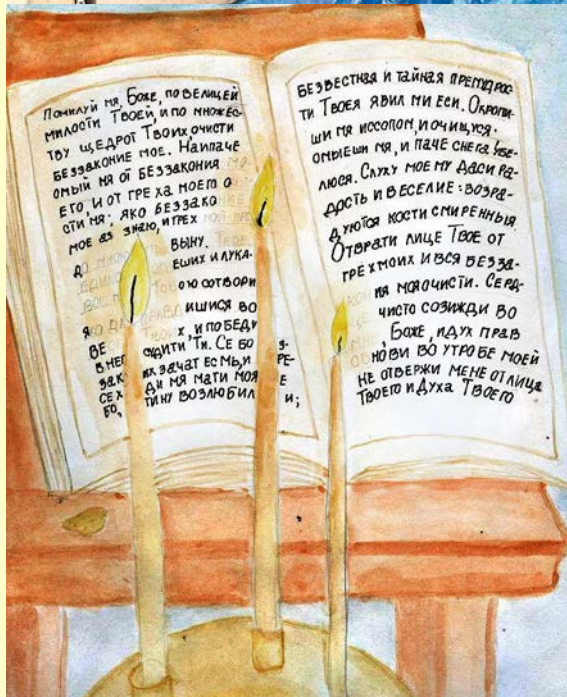 Помилуй мя, Боже, по велицей
милости Твоей, и по множес-
тву щедрот Твоих очисти
беззаконие мое. Наипаче
омый мя от беззакония мо
его, и от греха моего о
сти мя; яко беззако
мое аз знаю, и грех
до выну.
еших и лука-
ою сотвори
яко да оправд ишися во
Твоих, и победи
внег судити Ти. Се бо з-
зак их зачат есмь, и ре-
сех ди мя мати моя е
бо, тину возлюбил и;
безвестная и тайная премудрос-
ти Твоея явил ми еси. Окропи-
ши мя иссопом, и очищуся.
омыеши мя, и паче снега убе-
люся. Слуху моему даси ра-
дость и веселие: возра-
дуются кости смиренныя
Отврати лице Твое от
грех моих и вся безза-
ния моя очисти. Серд-
чисто созижди во
, Боже, и дух прав
нови во утробе моей
не отвержи мене от лица
Твоего и Духа Твоего